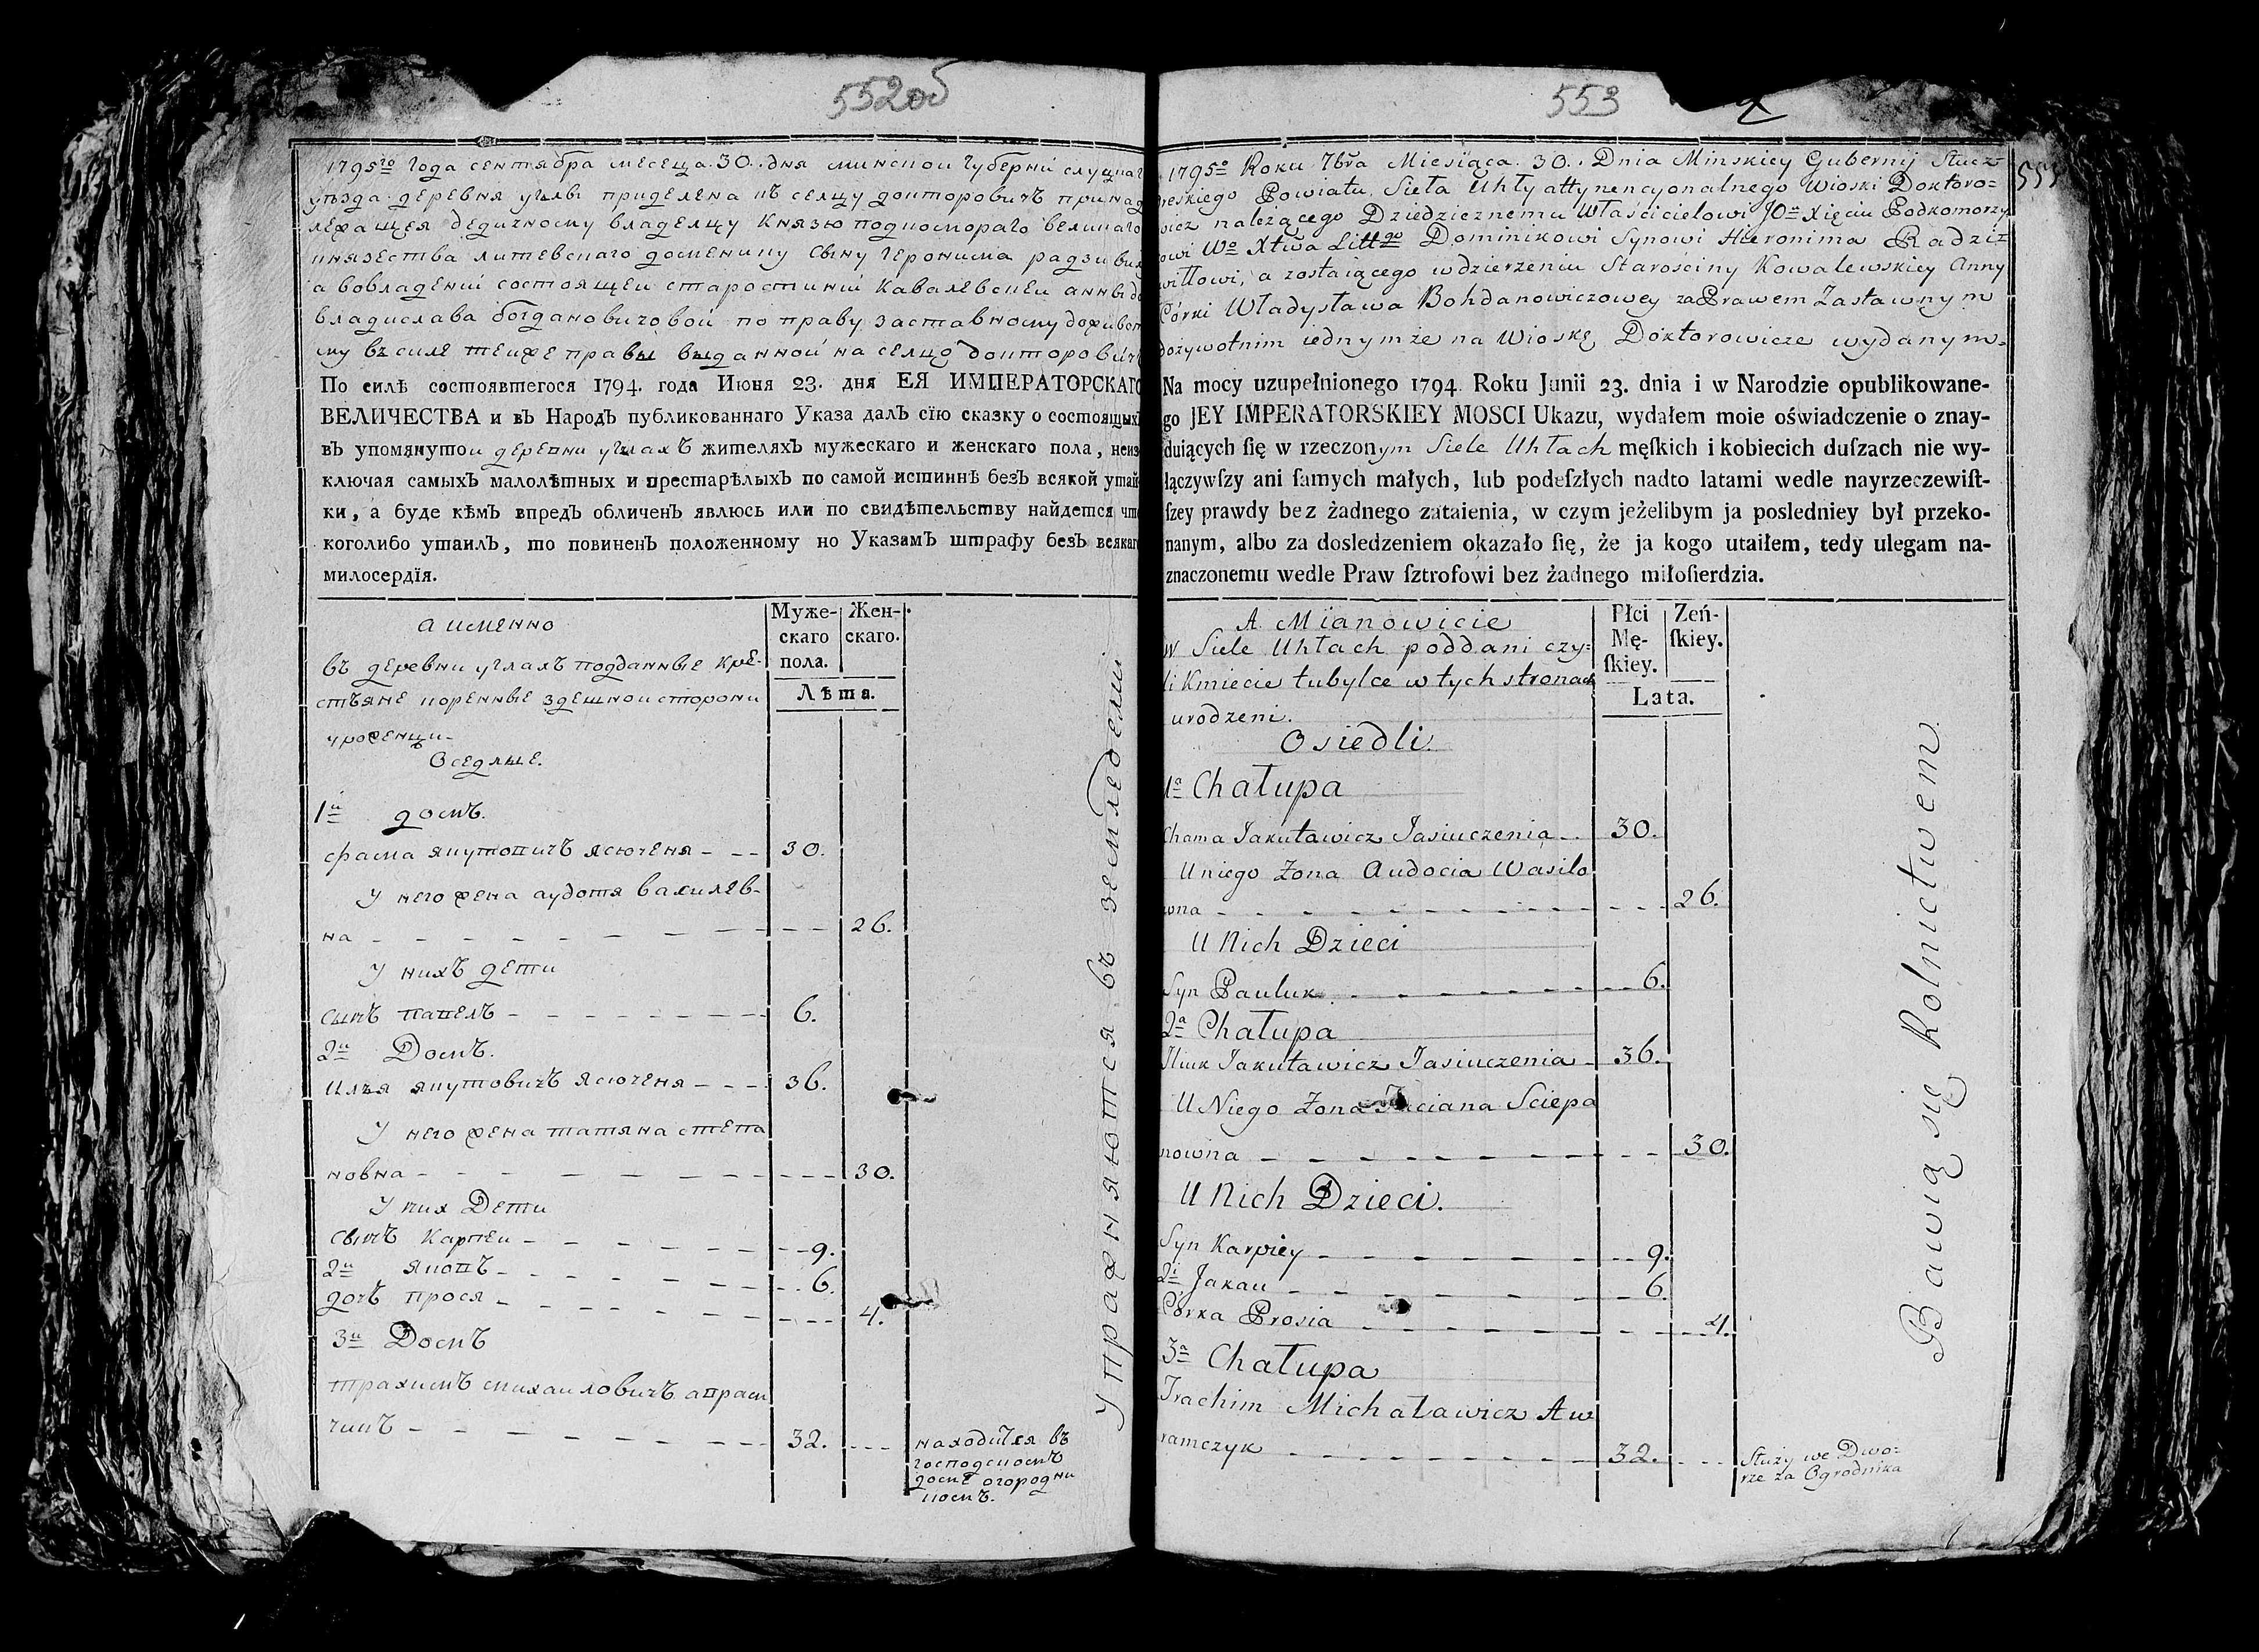 552об
1795го Года сентября месеца. 30. дня минской губерний слуцкаг
уѣзда деревня углы приделена къ селцу докторовичъ принад
лежащея дедичному владелцу Князю подкомораго великаго
князества литевскаго доменику сыну геронима радзивил
а вовладений состоящеи старостиний кавалевскеи анны до
владислава богданович овой по праву заставному доживот
му въ силе теиже правы выданной на селцо докторовичъ
По силѣ состоявшегося 1794. года Июня 23. дня ЕЯ ИМПЕРАТОРСКАГО
ВЕЛИЧЕСТВА и вЪ НародЪ публикованнаго Указа далЪ сїю сказку о состоящыхЪ
вЪ упомянутои деревни углахЪ жителяхЪ мужескаго и женскаго пола, неиз
ключая самыхЪ малолѣтных и престарѣлыхЪ по самой истиннѣ безЪ всякой утай
ки, а буде кѣмЪ впредЪ обличенЪ явлюсь или по свидѣтельству найдется что
коголибо утаилЪ, то повиненЪ положенному по УказамЪ штрафу безЪ всякаго
милосердїя.
а именно
Муже-
скаго
пола.
Жен-
скаго.
Лѣта.
въ деревни углахъ подданные кре-
стъяне коренные здешной сторони
уроженцы
Оседлые.
1й домъ.
фама якутовичъ ясюченя - - - 30.
У него жена аудотя василев-
на - - - 26.
У нихъ дети
сынъ павелъ - - - 6.
2й Домъ.
илья якутовичъ ясюченя - - - 36.
У него жена татяна степа
новна - - - 30.
У них Дети
сынъ карпеи - - - 9.
2й яковъ - - - 6.
дочъ прося - - - 4.
3й Домъ
трахимъ михаиловичъ аврам
чикъ - - - 32.
находится въ
господскомъ
доме огородни
комъ.
Упражняются въ земледелии
553
1795o Roku 7bra Miesiąca. 30. Dnia Minskiey Gubernij Słucz
reskiego Powiatu Sieła Uhły attynencyonalnego Wioski Doktoro=
wicz należącego Dziedzicznemu Właścicielowi JOmu Xięciu Podkomorzy
owi Wo Xtwa Littgo Dominikowi Synowi Hieronima Radzi=
wiłłowi, a zostaiącego w dzierzeniu Starościny Kowalewskiey Anny
Córki Władysława Bohdanowiczowey za Prawem Zastawnym
dożywotnim iednymże na Wioskę Doktorowicze wydanym.
Na mocy uzupełnionego 1794 Roku Junii 23. dnia i w Narodzie opublikowane-
go JEY IMPERATORSKIEY MOSCI Ukazu, wydałem moie oświadczenie o znay-
duiących ſię w rzeczonym Siele Uhłach męſkich i kobiecich duſzach nie wy-
łączywſzy ani ſamych małych, lub podeſzłych nadto latami wedle nayrzeczewiſt-
ſzey prawdy bez żadnego zataienia, w czym jeżelibym ja posledniey był przeko-
nanym, albo za dosledzeniem okazało ſię, że ja kogo utaiłem, tedy ulegam na-
znaczonemu wedle Praw ſztrofowi bez żadnego miłoſierdzia.
A Mianowicie
Płci
Mę-
ſkiey.
Zeń-
ſkiey.
Lata.
w Siele Uhłach poddani czy=
li Kmiecie tubylce w tych stronach
urodzeni.
Osiedli.
1a Chałupa
Chama Jakutawicz Jasiuczenia - - 30.
U niego Żona Audocia Wasilo
wna - - - 26.
U Nich Dzieci
Syn Pauluk - - - 6.
2a Chałupa
Iliuk Jakutawicz Jasiuczenia - 36.
U Niego Żona Taciana Sciepa
nowna - - - 30.
U Nich Dzieci.
Syn Karpiey - - - 9.
2i Jakau - - - 6.
Córka Prosia - - - 4.
3a Chałupa
Trachim Michaławicz Aw
ramczyk - - - 32.
Służy we Dwo=
rze za Ogrodnika
Bawią się Rolnictwem.